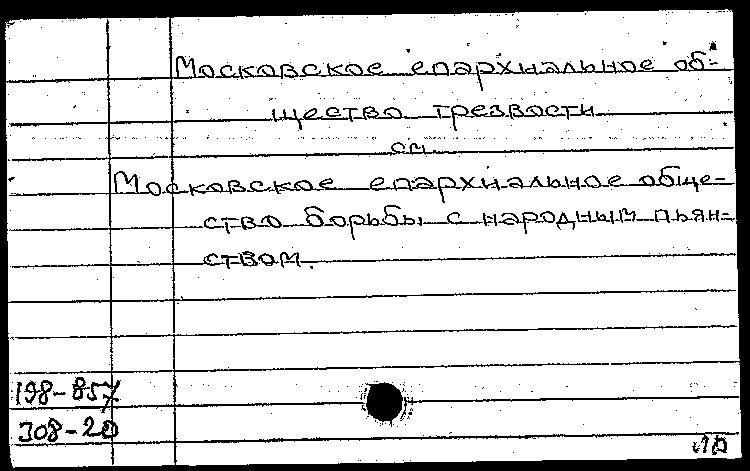 Московское епархиальное об-
щество трезвости
см.
Московское епархиальное обще-
ство борьбы с народным пьян-
ством.
198-857
308-20